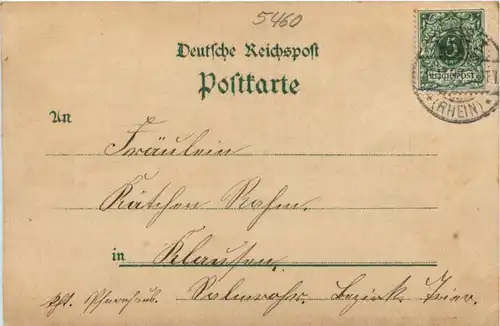 5460
Deutsche Reichspost
Postkarte
5
REICHSPOST
* (RHEIN) *
An
Fräulein
Käthchen Rahm.
in Klausen.
Pfarrhaus. Salmrohr. Bezirk Trier.